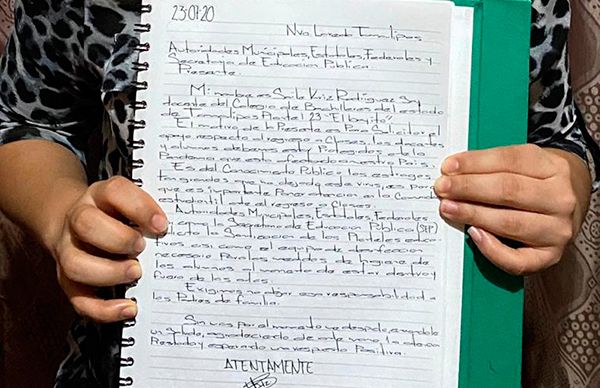 23·07·20
Nvo. Laredo Tamaulipas
Autoridades Municipales, Estatales, Federales y
Secretaria de Educacion Pública
Presente.
Mi nombre es Ruiz Rodríguez Soy
docente del Colegio de Bachilleres del estado
de Tamaulipas Plantel 23 "El bayito"
El motivo de la Presente es Para Solicitar el
apoyo respecto al regreso a Clases, los docentes
y alumnos debemos estar Preparados ante la
Pandemia que esta afectando a nuestro Pais.
Es del Conocimiento Publico los estragos
que ha dejado este virus, es por
que es importante Para la Comunidad
estudiantil ante el regreso a Clases.
Autoridades Municipales, Estatales, Federales
y la Secretaria de Educacion Publica (SEP)
la Sanitizacion de los Planteles educa-
tivos asi como el equipo de
necesario Para las medidas de higiene de
los alumnos al momento de estar dentro y
fuera de las aulas.
Exigimos no dejar esa responsabilidad a
los Padres de familia.
Sin mas por el momento me despido, enviandole
un Saludo, agradeciendo de este medio, la
Prestada y esperando una respuesta Positiva.
ATENTAMENTE